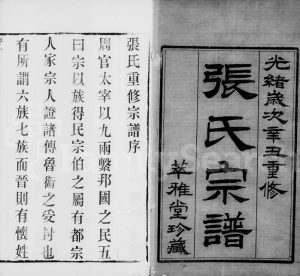 光緒歲次辛丑重修
張氏宗譜
萃雅堂珍藏
張氏重修宗譜序
周官太宰以九兩繫邦國之民五
曰宗以族得民宗伯之屬有都宗
人家宗人證諸傳魯衞之受封也
有所謂六族七族而晉則有懷姓